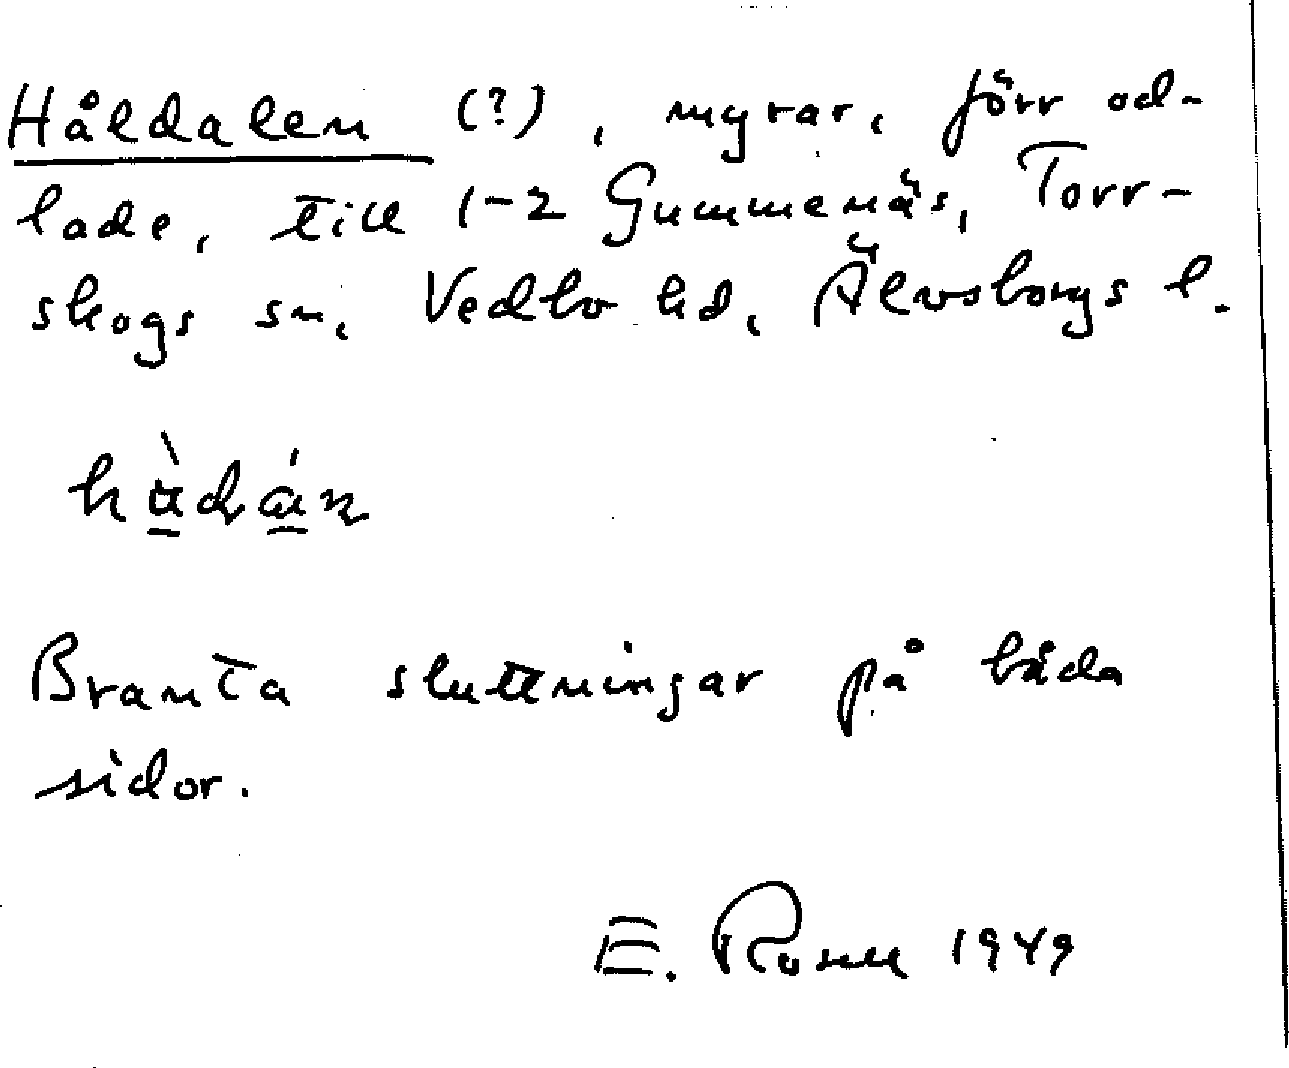 Håldalen (?), myrar, förr od-
lade, till 1-2 Gummenäs, Torr-
skogs sn, Vedbo hd, Älvsborgs l.
Branta sluttningar på båda
sidor.
E. Rosell 1949